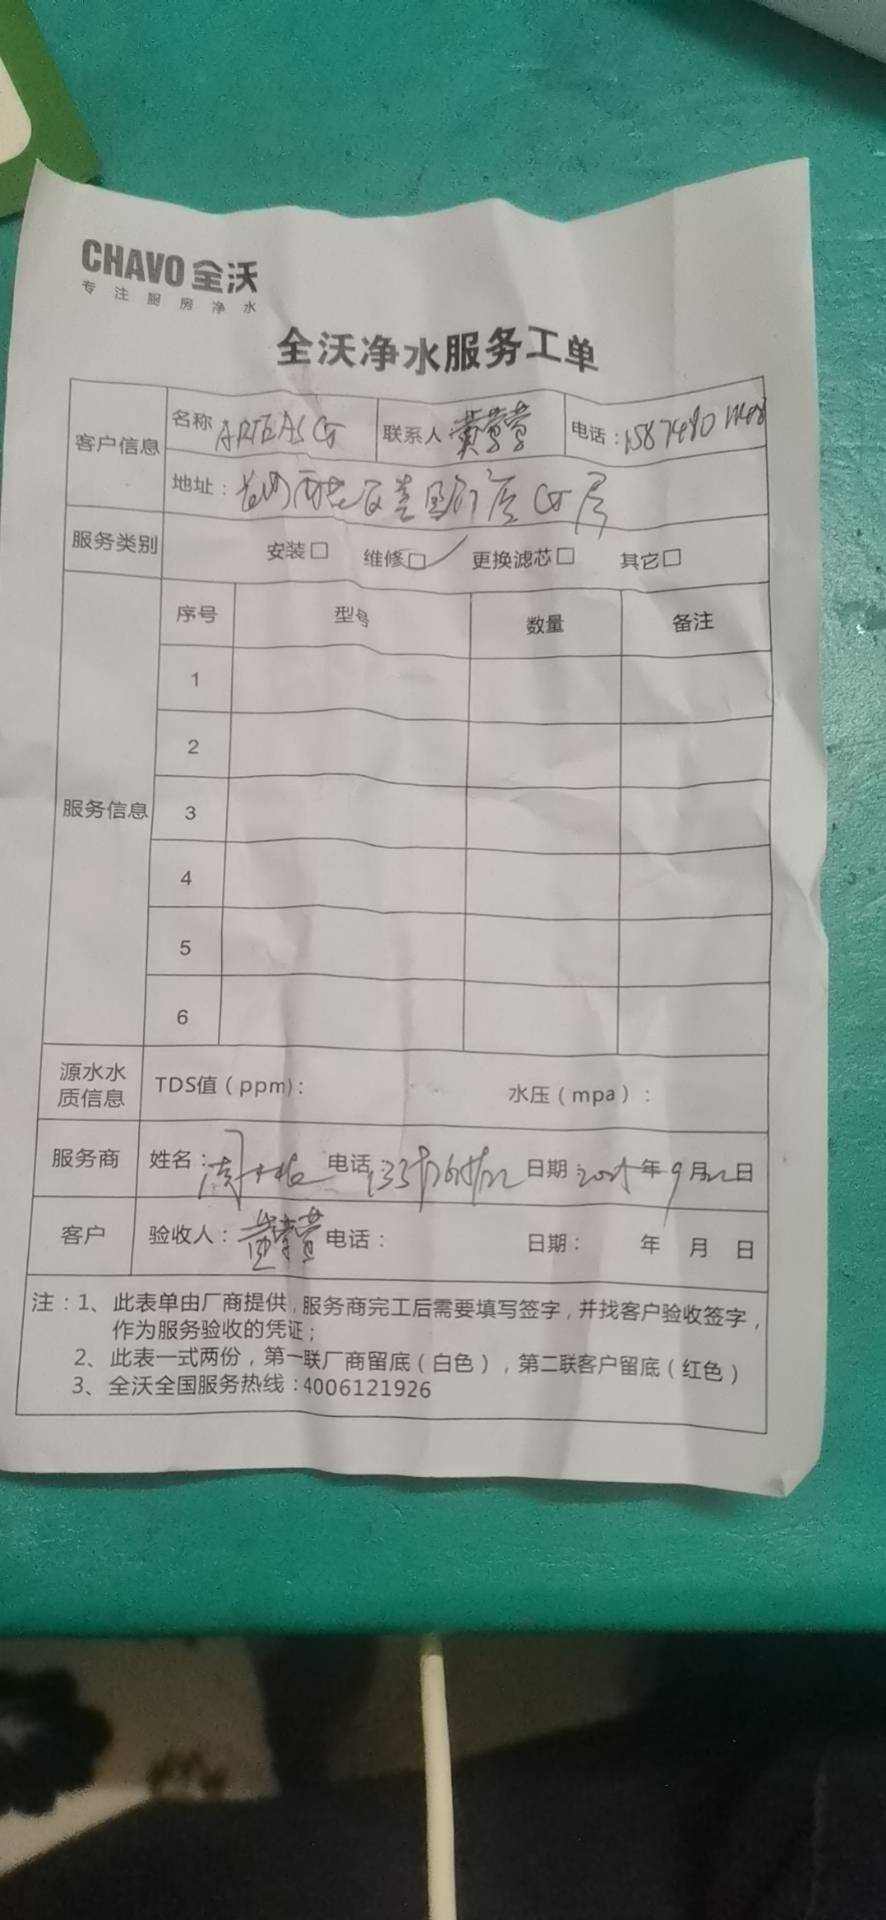 CHAVO 全沃
专注厨房净水
全沃净水服务工单
客户信息 名称 联系人: 黄莺莺 电话:
地址:
服务类别 安装□ 维修□✓ 更换滤芯□ 其它□
服务信息 序号 型号 数量 备注
1
2
3
4
5
6
源水水质信息 TDS值(ppm): 水压(mpa):
服务商 姓名: 周 电话: 日期: 年9月22日
客户 验收人: 黄莺莺 电话: 日期: 年 月 日
注:1、此表单由厂商提供,服务商完工后需要填写签字,并找客户验收签字,
作为服务验收的凭证;
2、此表一式两份,第一联厂商留底(白色),第二联客户留底(红色)
3、全沃全国服务热线:4006121926